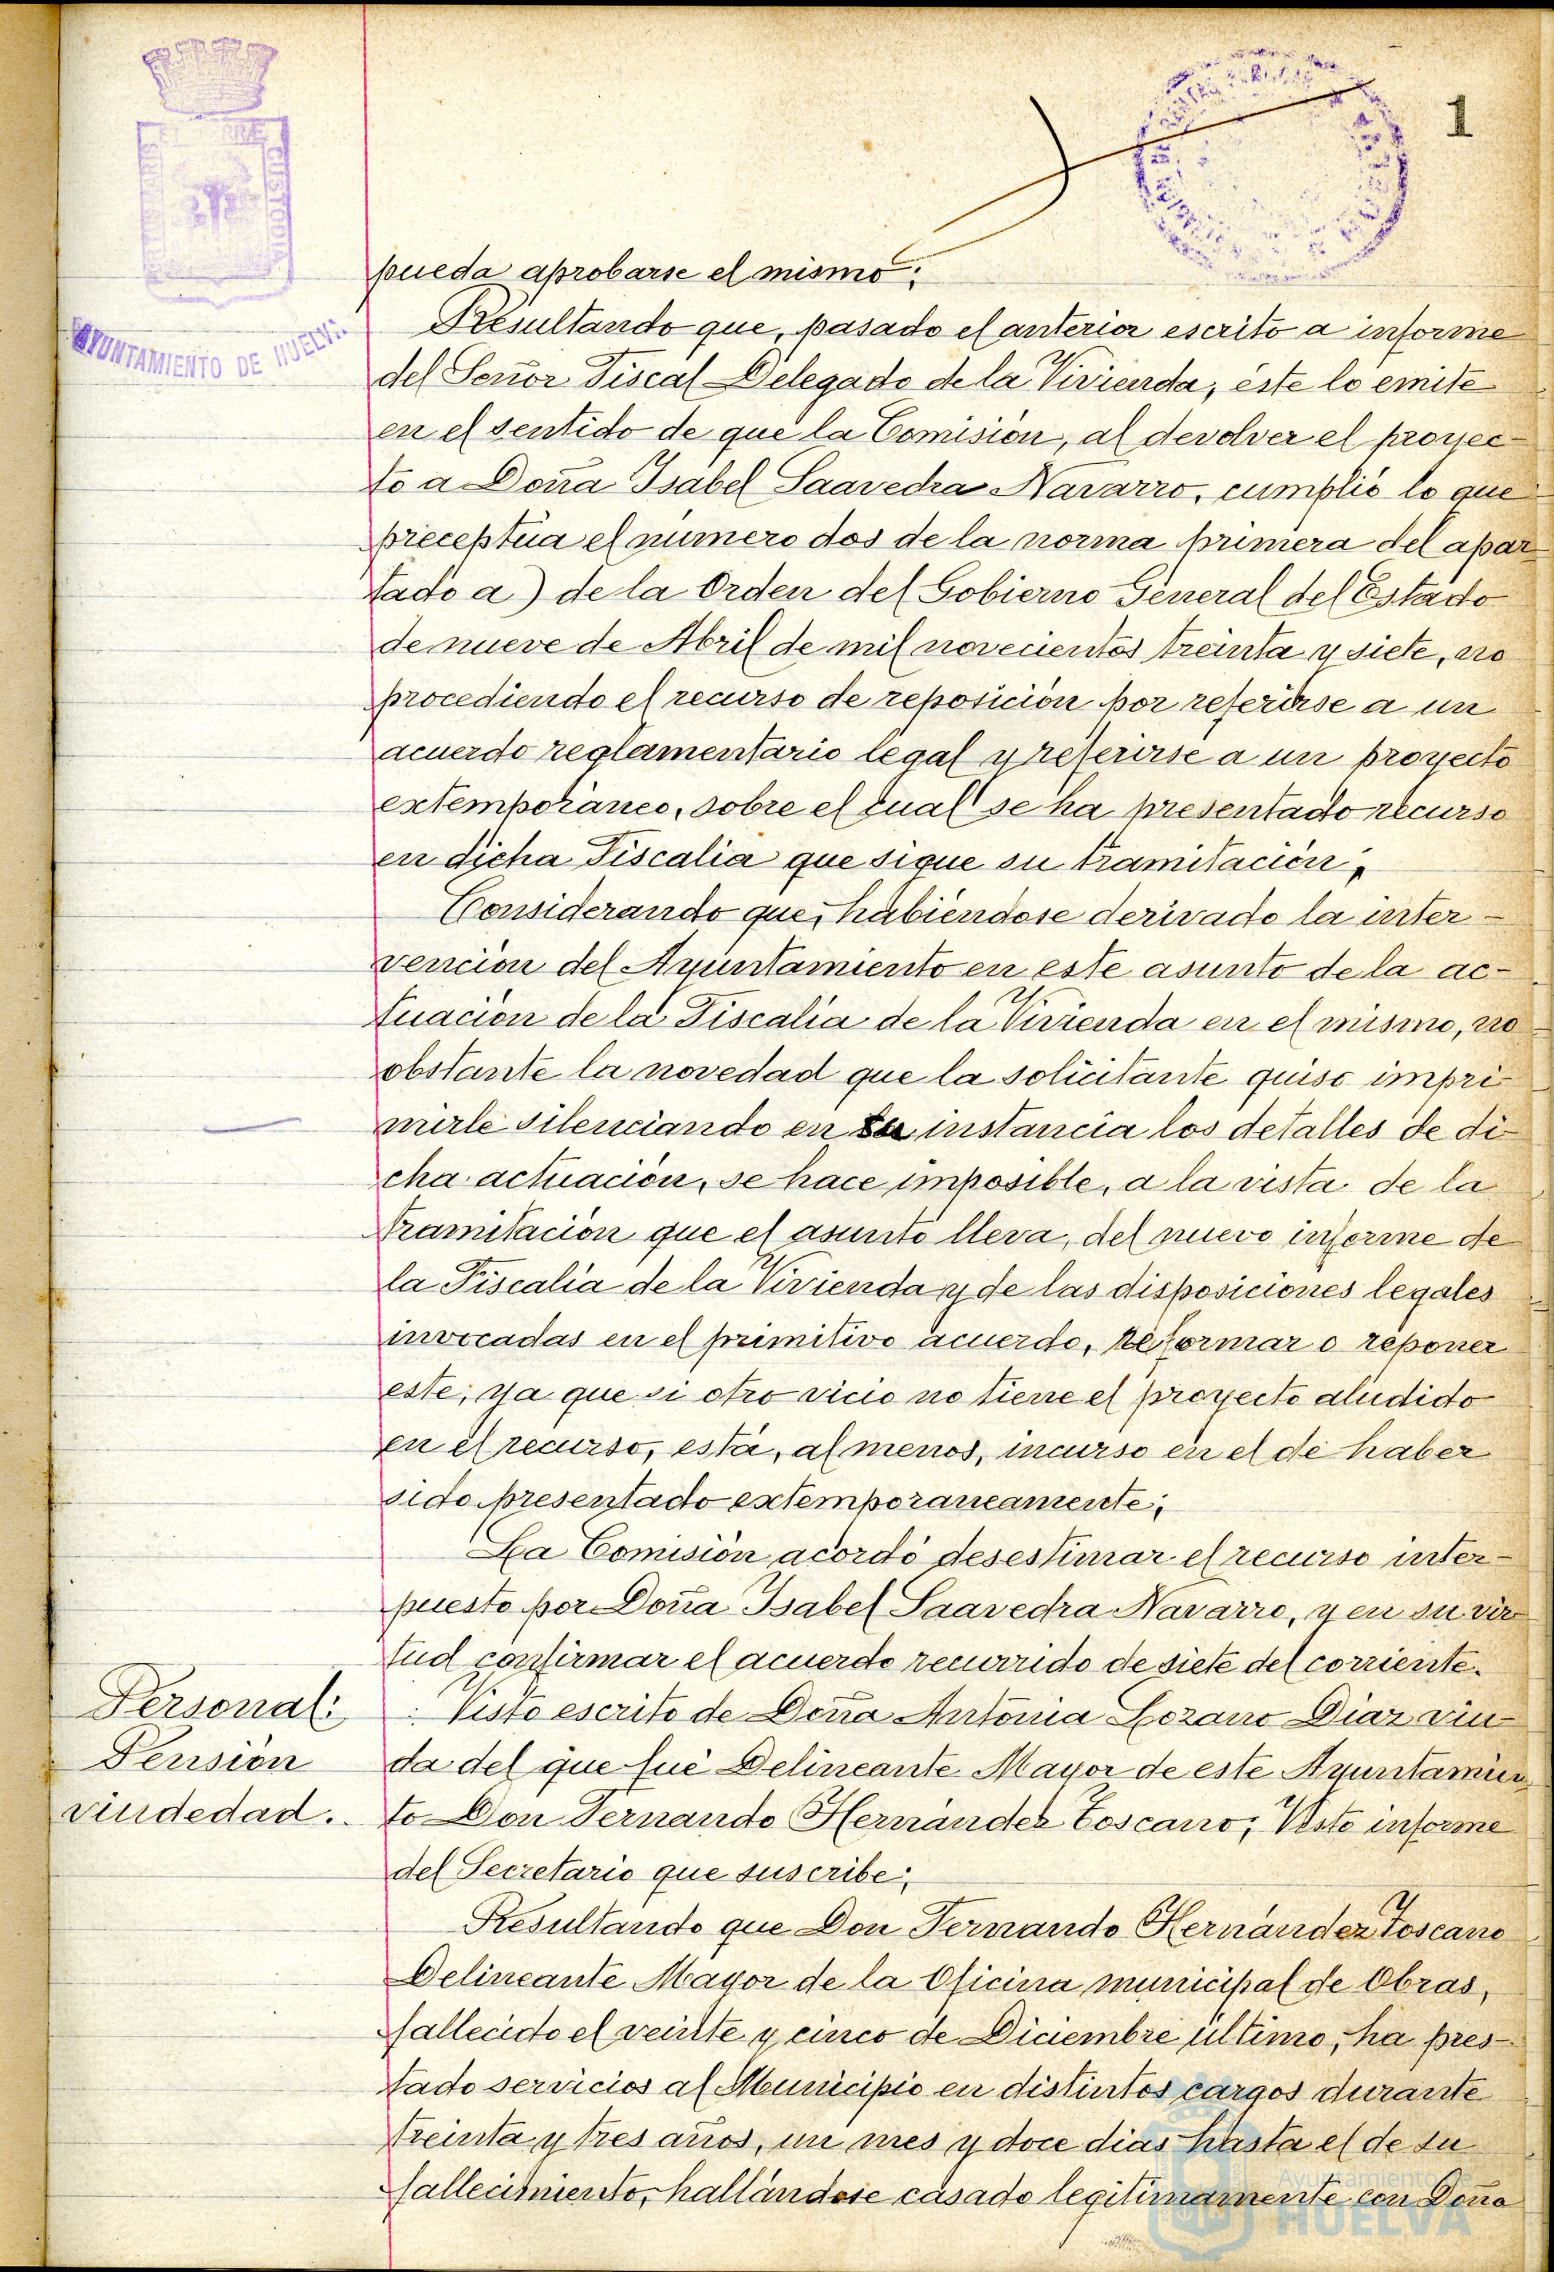 1
AYUNTAMIENTO DE HUELVA
pueda aprobarse el mismo;
Resultando que, pasado el anterior escrito a informe
del Señor Fiscal Delegado de la Vivienda, éste lo emite
en el sentido de que la Comisión, al devolver el proyec-
to a Doña Isabel Saavedra Navarro, cumplió lo que
preceptúa el número dos de la norma primera del apar-
tado a) de la Orden del Gobierno General del Estado
de nueve de Abril de mil novecientos treinta y siete, no
procediendo el recurso de reposición por referirse a un
acuerdo reglamentario legal y referirse a un proyecto
extemporáneo, sobre el cual se ha presentado recurso
en dicha Fiscalia que sigue su tramitación;
Considerando que, habiéndose derivado la inter-
vención del Ayuntamiento en este asunto de la ac-
tuación de la Fiscalía de la Vivienda en el mismo, no
obstante la novedad que la solicitante quiso impri-
mirle silenciando en su instancia los detalles de di-
cha actuación, se hace imposible, a la vista de la
tramitación que el asunto lleva, del nuevo informe de
la Fiscalía de la Vivienda y de las disposiciones legales
invocadas en el primitivo acuerdo, reformar o reponer
este, ya que si otro vicio no tiene el proyecto aludido
en el recurso, está, al menos, incurso en el de haber
sido presentado extemporaneamente;
La Comisión acordó desestimar el recurso inter-
puesto por Doña Isabel Saavedra Navarro, y en su vir
tud confirmar el acuerdo recurrido de siete del corriente.
Personal:
Pensión
viudedad.
Visto escrito de Doña Antonia Lozano Diaz viu-
da del que fué Delineante Mayor de este Ayuntamien
to Don Fernando Hernández Toscano; Visto informe
del Secretario que suscribe;
Resultando que Don Fernando Hernández Toscano
Delineante Mayor de la Oficina municipal de Obras,
fallecido el veinte y cinco de Diciembre último, ha pres-
tado servicios al Municipio en distintos cargos durante
treinta y tres años, un mes y doce dias hasta el de su
fallecimiento, hallándose casado legítimamente con Doña
Ayuntamiento de
HUELVA